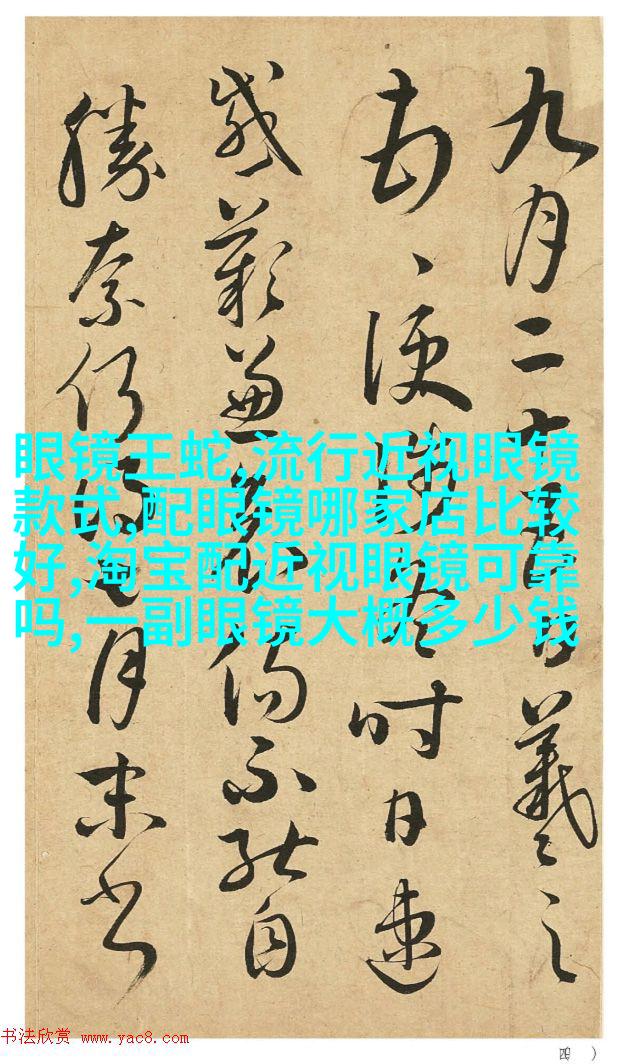 九月二十日羲之
便冬時日速
感歎兼傷不能自
勝奈何得月末書
眼镜王蛇,流行近视眼镜
款式,配眼镜哪家店比较
好,淘宝配近视眼镜可靠
吗,一副眼镜大概多少钱
书法欣赏 www.yac8.com
四 )